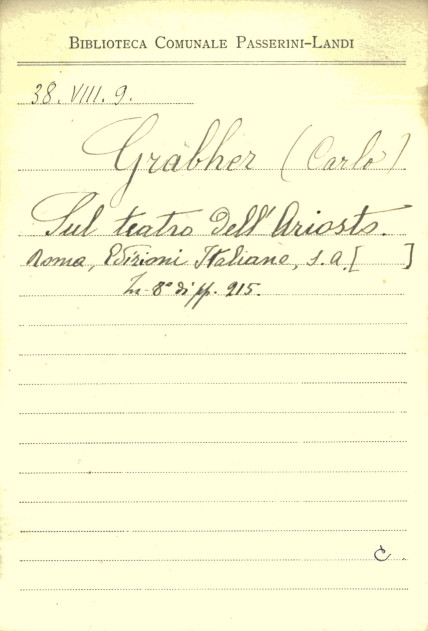 BIBLIOTECA COMUNALE PASSERINI-LANDI
38. VIII. 9.
Grabher (Carlo)
Sul teatro dell'Ariosto.
Roma, Edizioni Italiane, s.a. [ ]
In-8° di pp. 215.
C